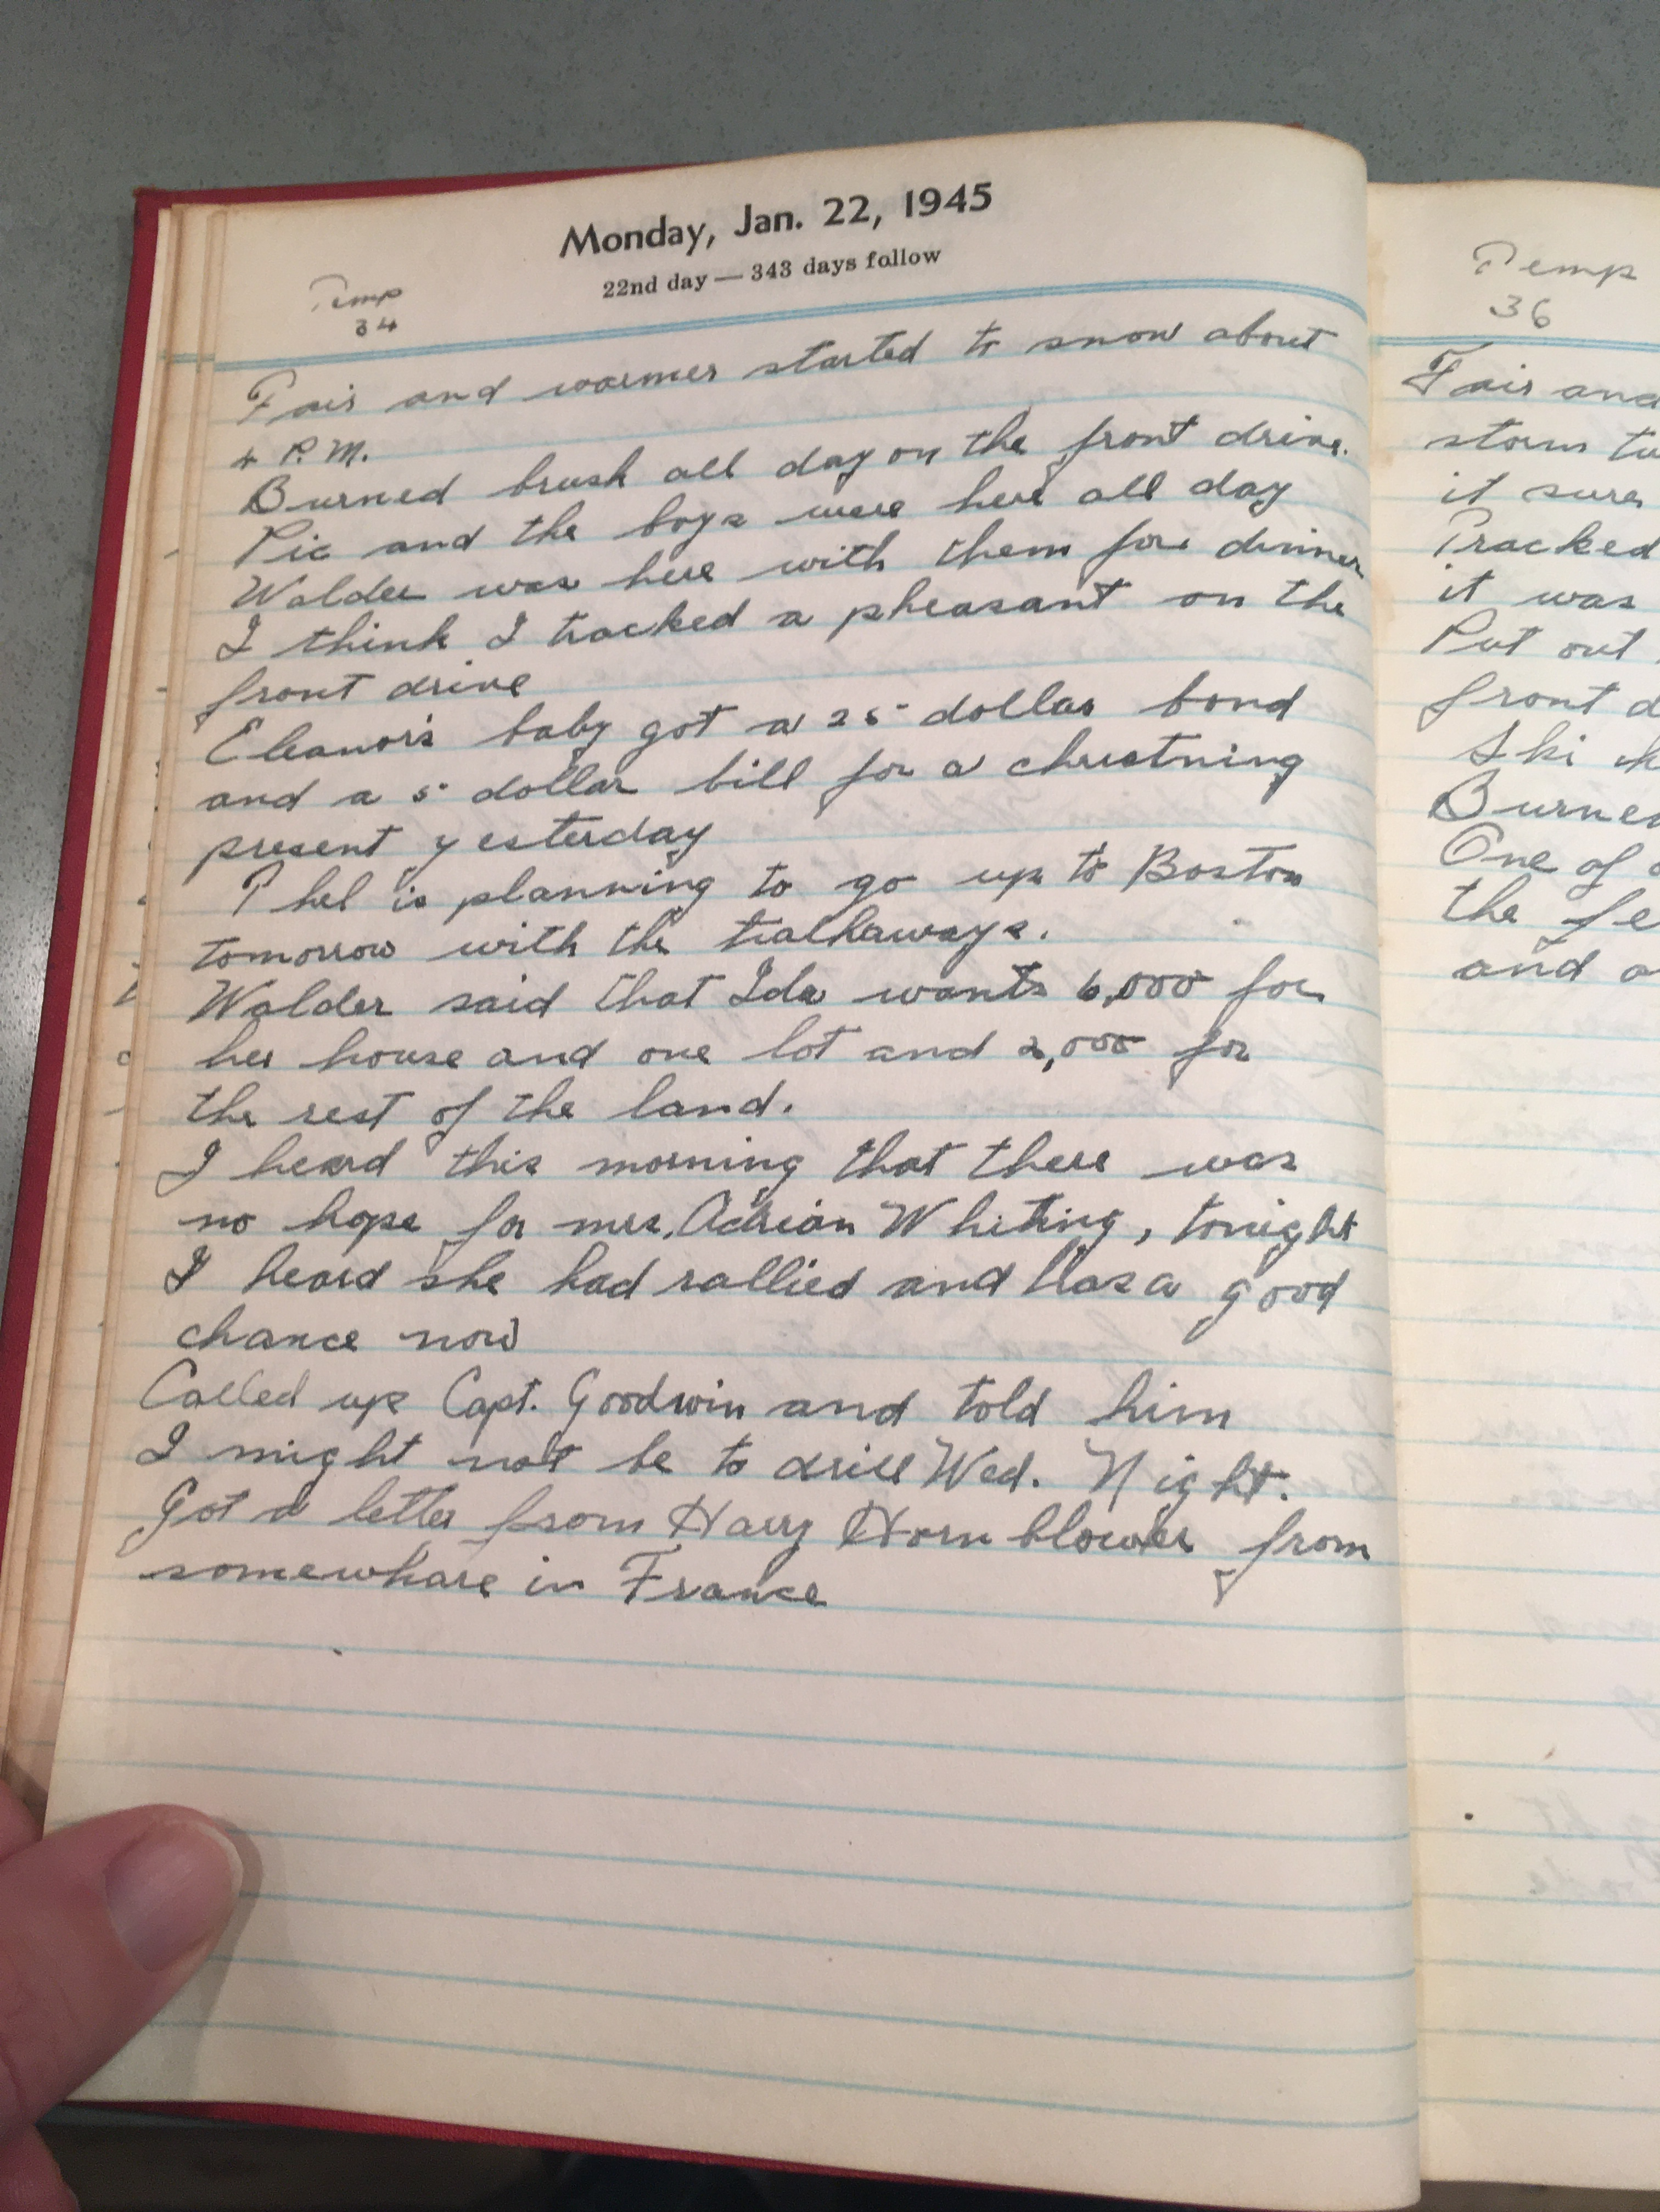 Monday, Jan. 22, 1945
22nd day — 343 days follow
Temp
34
Fair and warmer started to snow about
4 P.M.
Burned brush all day on the front drive.
Pic and the boys were here all day
Walder was here with them for dinner
I think I tracked a pheasant on the
front drive
Eleanor's baby got a 25 dollar bond
and a 5 dollar bill for a christning
present yesterday
Phel is planning to go up to Boston
tomorrow with the
Walder said that Ida wants 6,000 for
her house and one lot and 2,000 for
the rest of the land.
I heard this morning that there was
no hope for mrs. Adrian Whiting, tonight
I heard she had rallied and has a good
chance now
Called up Capt. Goodwin and told him
I might not be to drill Wed. Night.
Got a letter from Harry Hornblower from
somewhare in France
Temp
36
Fair and
storm
it sure
Tracked
it was
Put out
front d
Ski
Burned
One of
the fe
and a